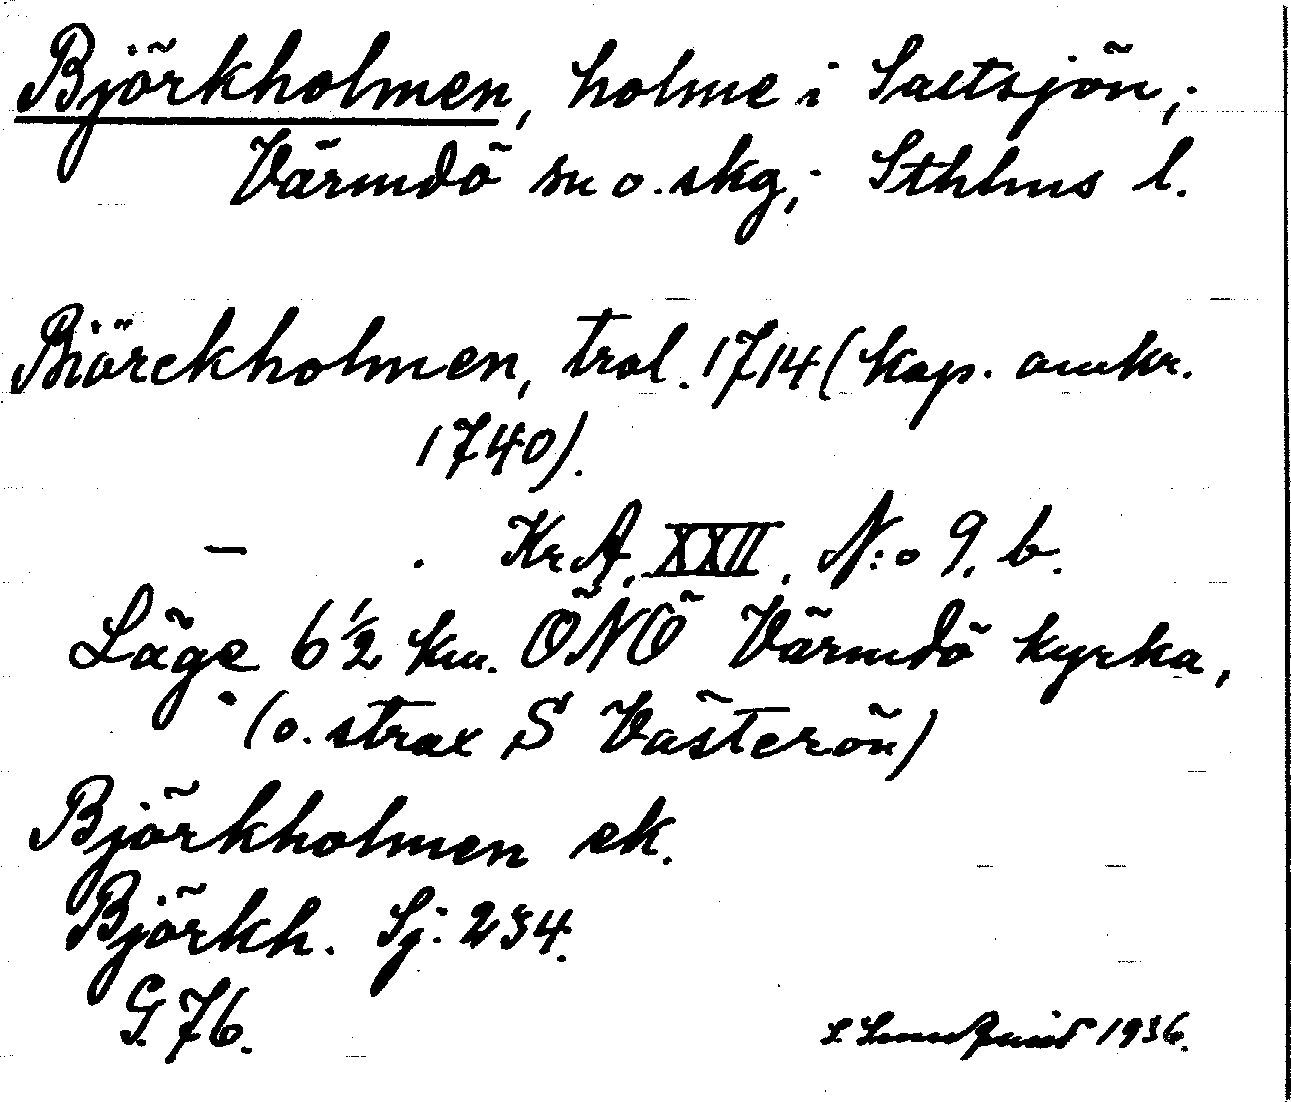 Björkholmen, holme i Saltsjön,;
Värmdö sn o. skg,; Sthlms l.
Biörckholmen, trol. 1714 (kop. omkr.
1740).
— . Kr A. XXII. N:o 9. b.
Läge 6 1/2 km. ÖNÖ Värmdö kyrka,
(o. strax S Västerön)
Björkholmen ek.
Björkh. Sj: 234.
G. 76.
L Lundquist 1936.